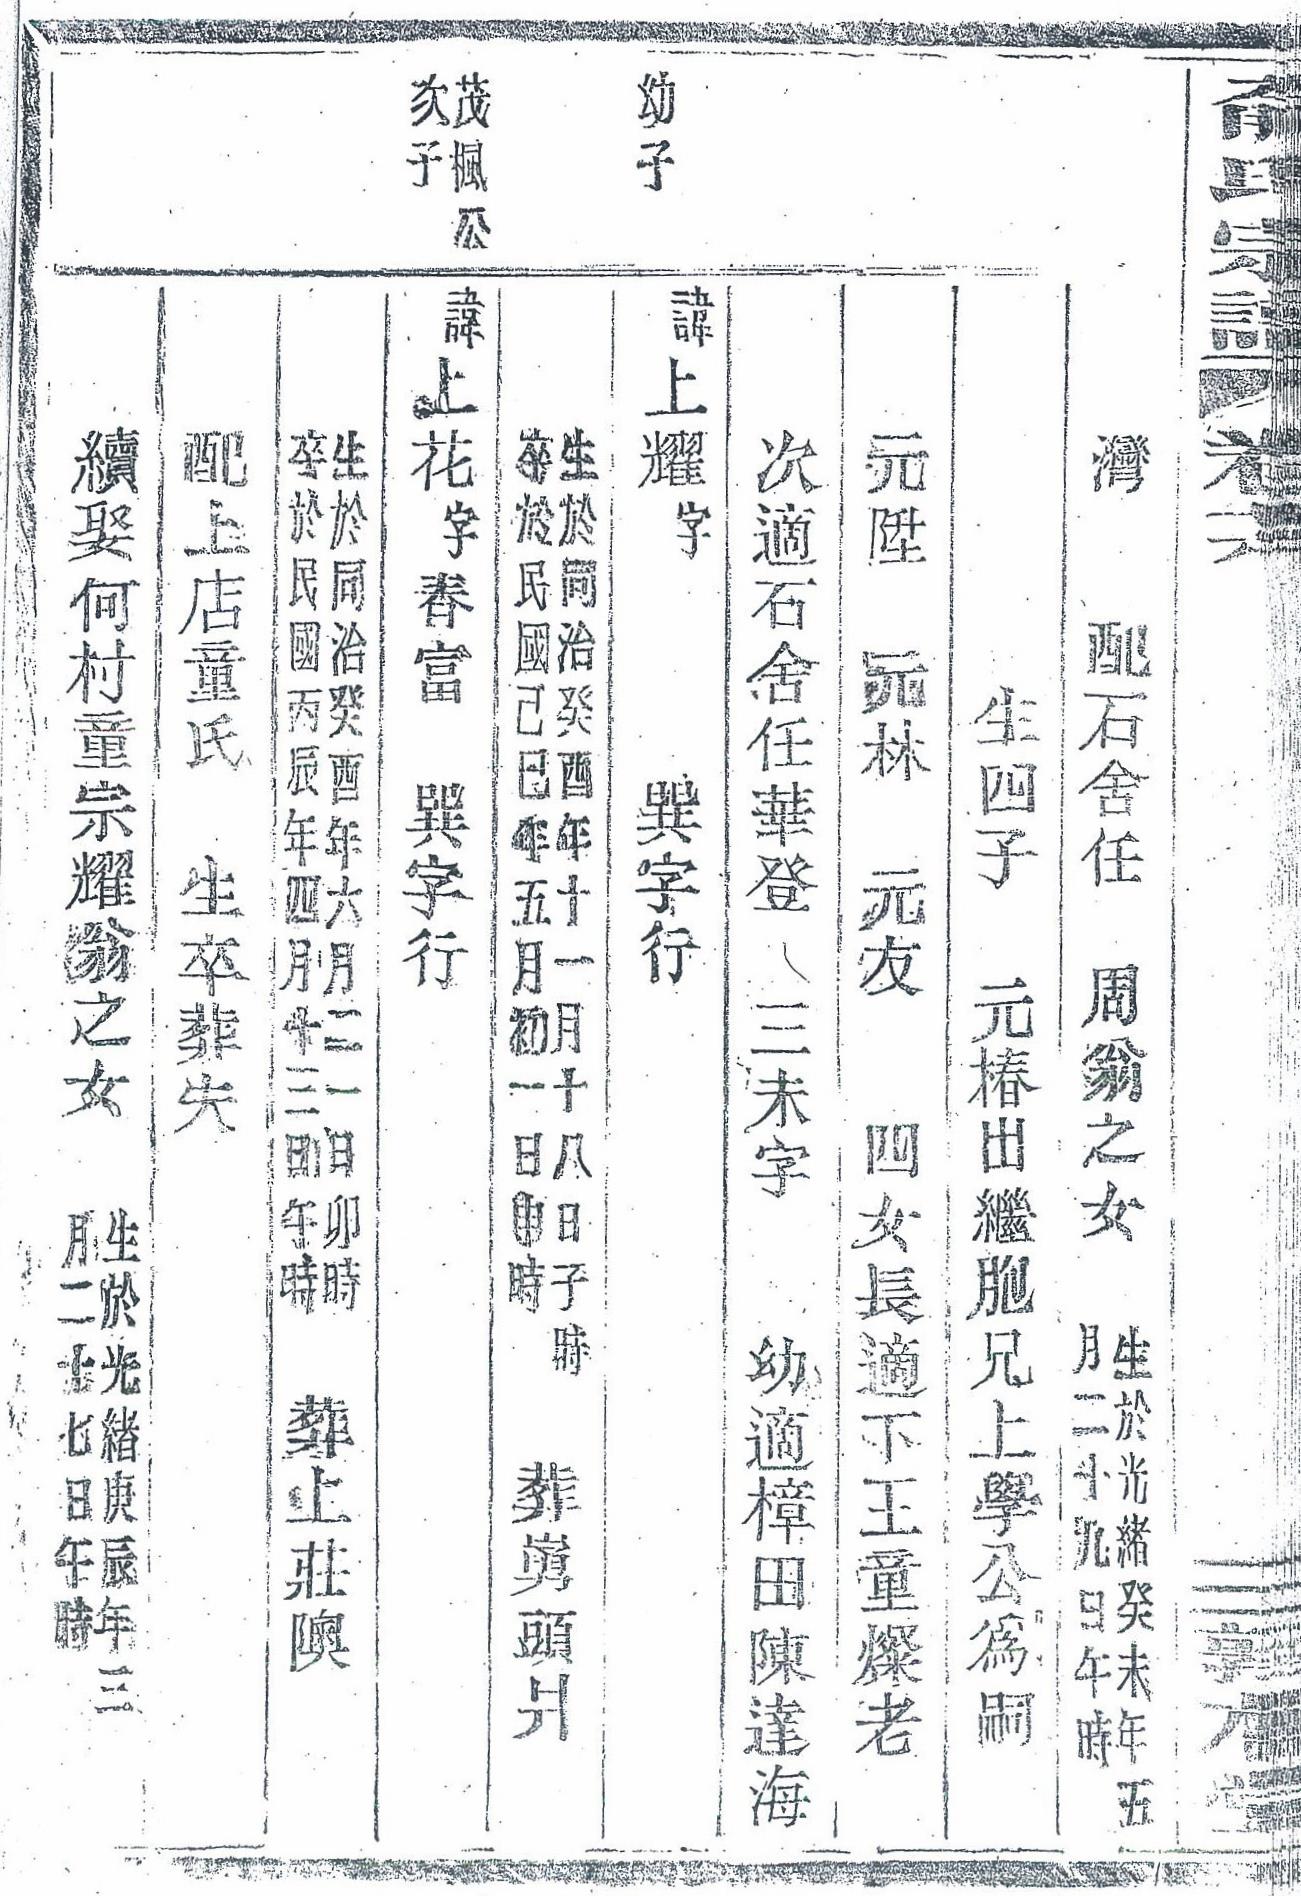 氏宗譜 卷六
灣 配石舍任 周翁之女 生於光緒癸未年五
月二十九日午時
生四子 元椿出繼胞兄上學公為嗣
元陞 元林 元友 四女長適下王童燦老
次適石舍任華登 三未字 幼適樟田陳達海
幼子
諱上耀字 巽字行
生於同治癸酉年十一月十八日子時
卒於民國己巳年五月初一日申時 葬嵩頭爿
茂楓公
次子
諱上花字春富 巽字行
生於同治癸酉年六月二一日卯時
卒於民國丙辰年四月十三日午時 葬上莊隩
配上店童氏 生卒葬失
續娶何村童宗耀翁之女 生於光緒庚辰年三
月二十七日午時